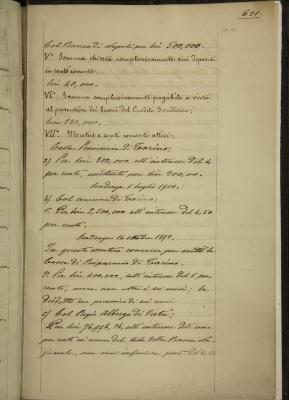 631.
Col Banco di Napoli per lire 500,000.
V.° Somma dovuta complessivamente sui depositi
in conto corrente:
lire 40,000.
VI.° Somma complessivamente pagabile a vista
ai portatori dei buoni del Credito Fondiario:
lire 230,000.
VII.° Mutui e conti correnti attivi.
Colla Provincia di Torino;
a) Per lire 800,000 all'interesse del 4
per cento, per lire 200,000.
Scadenza 1 luglio 1900.
b) Col comune di Torino;
1.° Per lire 2,500,000 all'interesse del 4,50
per cento.
Scadenza 14 ottobre 1892.
In questo mutuo concorre per metà la
Cassa di Risparmio di Torino.
2.° Per lire 600,000, all'interesse del 5 per
cento, mora non oltre i sei mesi; la
disdetta con preavviso di sei mesi.
c) Col Regio Albergo di Virtù;
Per lire 96,496,26, all'interesse dell'uno
per cento in meno del tasso della Banca Na-
zionale, non mai inferiore però del 4,50